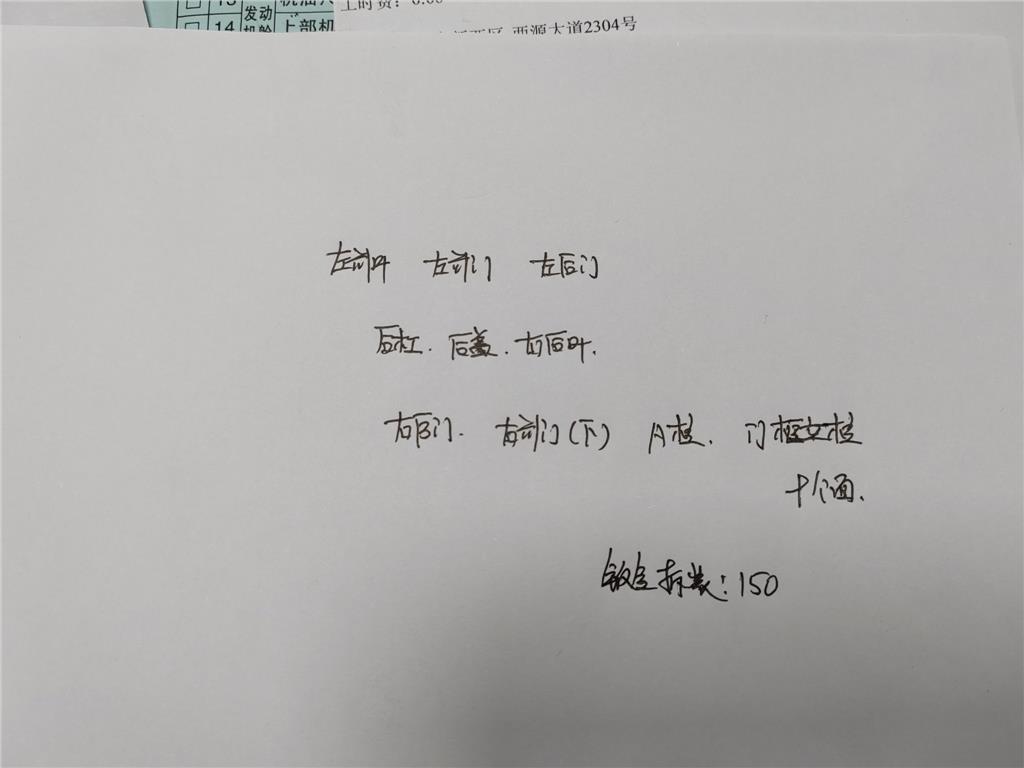 13 发动 机油 工时费：0.00
14 机舱 上部机 西源大道2304号
左前叶 左前门 左后门
后杠. 后盖. 右后叶.
右后门. 右前门(下) A柱. 门框立柱
十个面.
钣金拆装：150